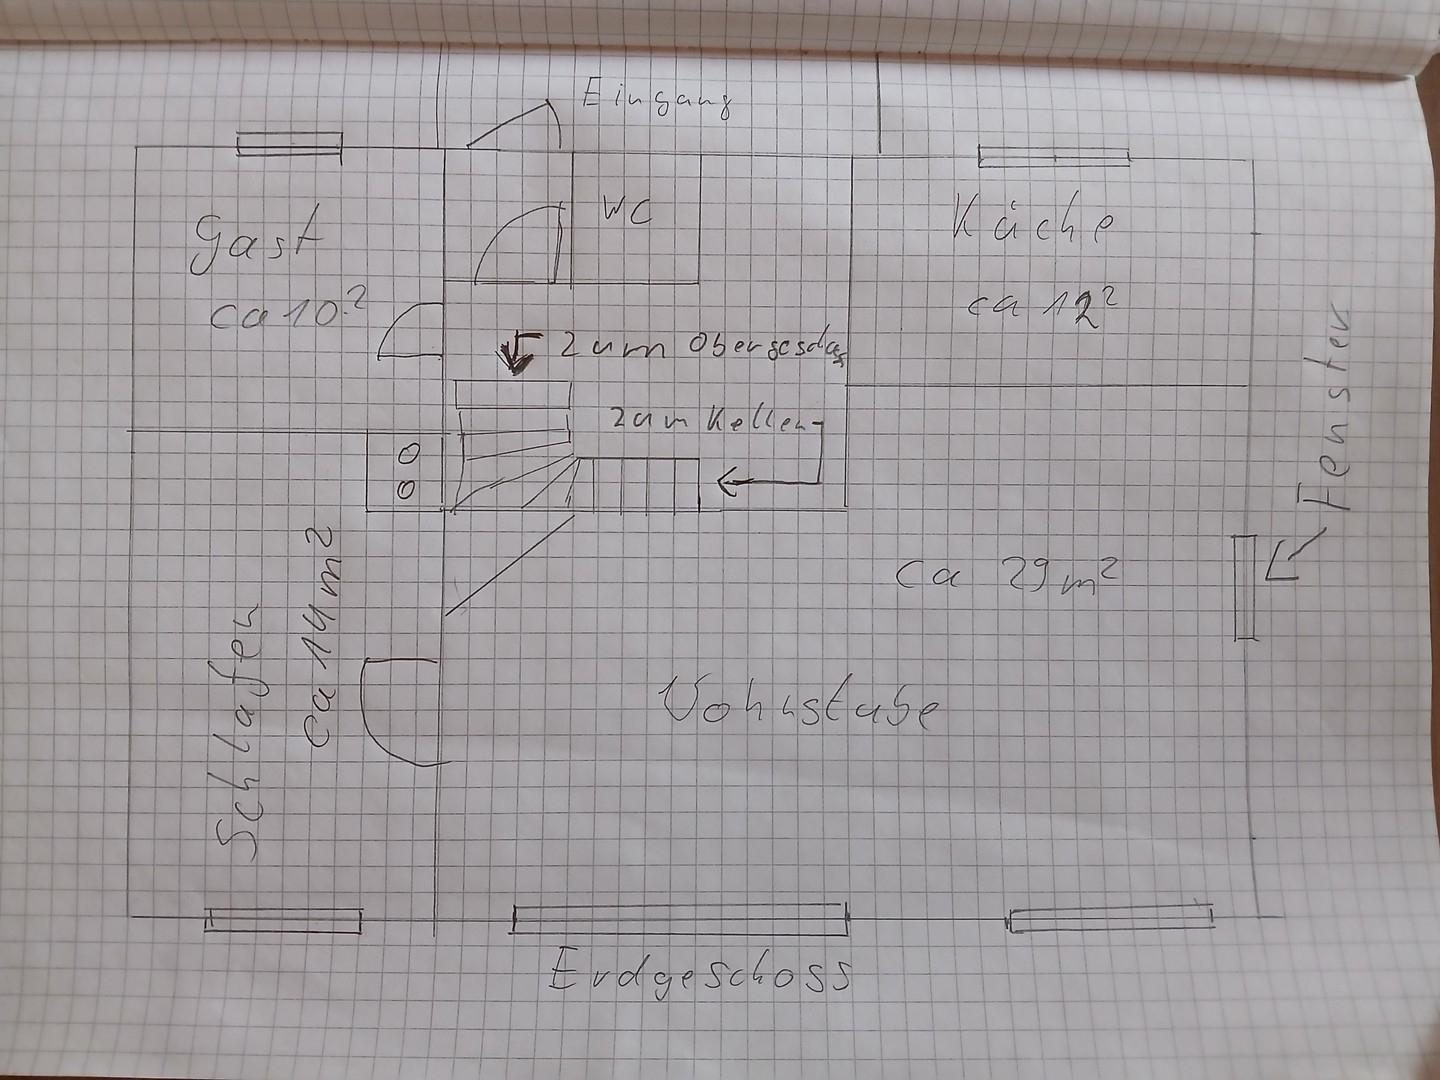 Eingang
WC
Gast
ca 10.²
Küche
ca 12²
Zum Obergesch
Zum Keller
Fenster
Schlafen
ca 14 m²
ca 29 m²
Wohnstube
Erdgeschoss